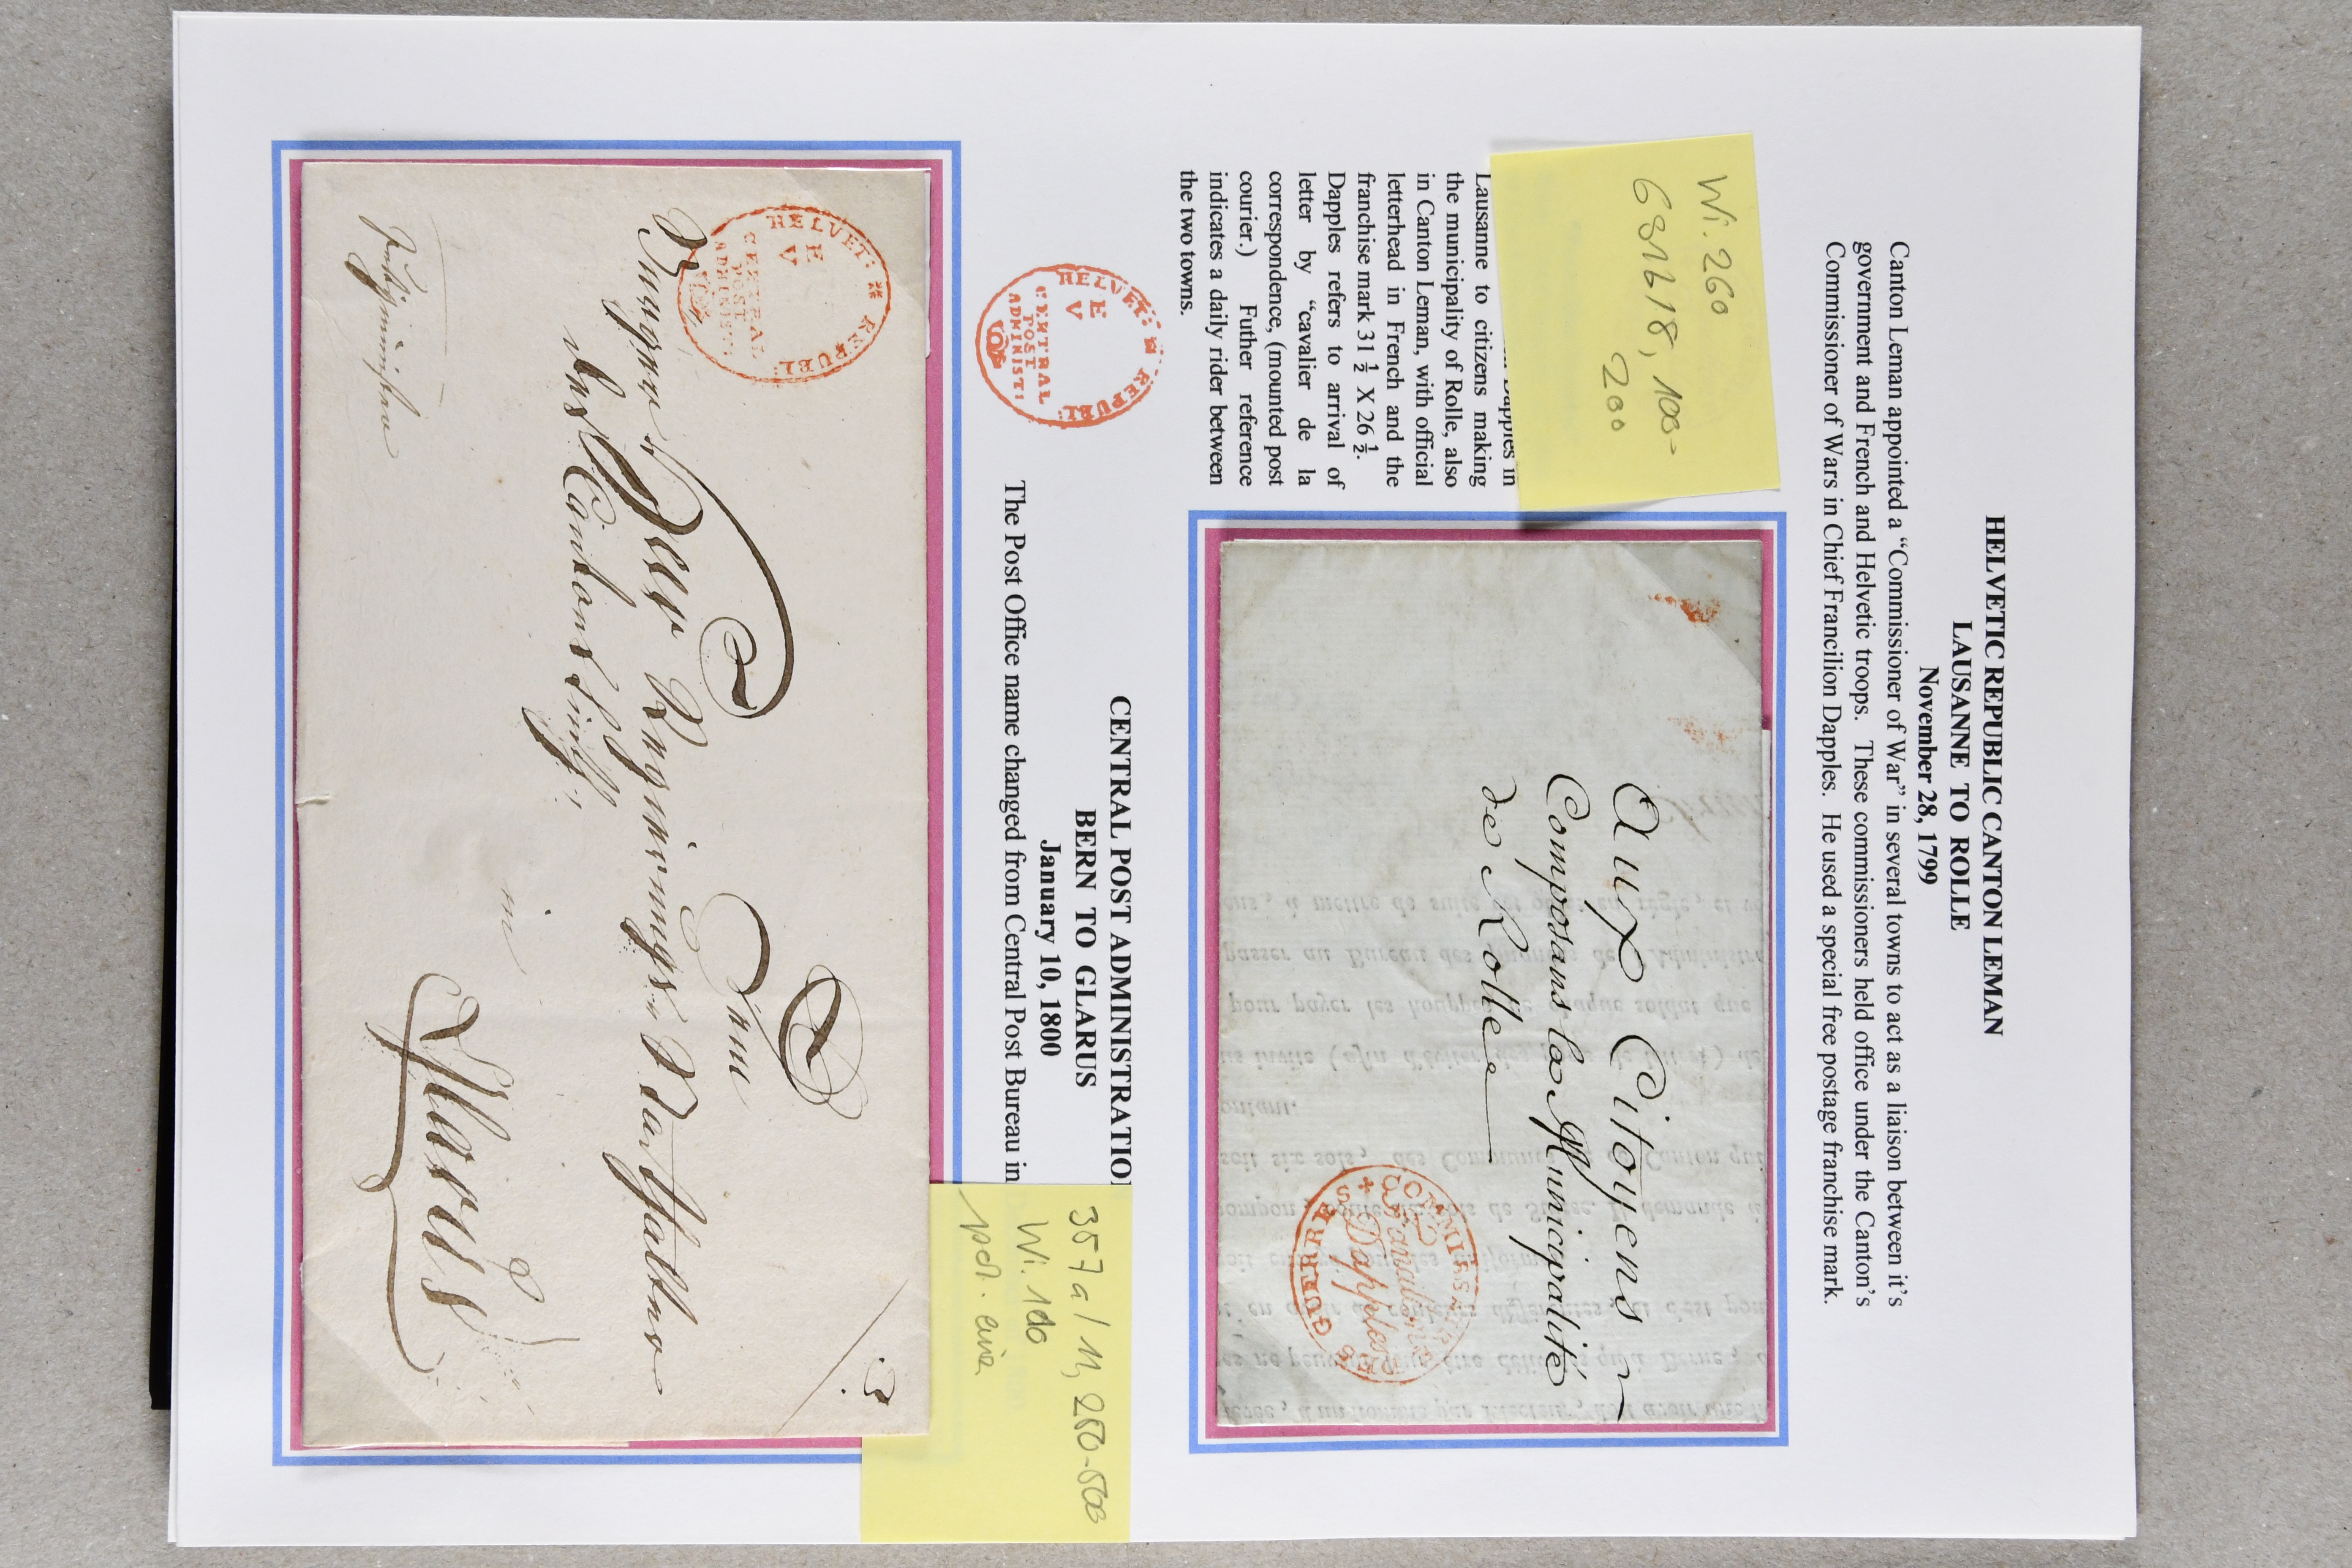 HELVETIC REPUBLIC CANTON LEMAN
LAUSANNE TO ROLLE
November 28, 1799
Canton Leman appointed a “Commissioner of War” in several towns to act as a liaison between it's
government and French and Helvetic troops. These commissioners held office under the Canton's
Commissioner of Wars in Chief Francilion Dapples. He used a special free postage franchise mark.
Wi. 260
200
Dapples in
Lausanne to citizens making
the municipality of Rolle, also
in Canton Leman, with official
letterhead in French and the
franchise mark 31 ½ X 26 ½.
Dapples refers to arrival of
letter by “cavalier de la
correspondence, (mounted post
courier.) Futher reference
indicates a daily rider between
the two towns.
Aux Citoyens
Composans la Municipalité
de Rolle
GUERRES
Dapples
CENTRAL POST ADMINISTRATIO
BERN TO GLARUS
January 10, 1800
The Post Office name changed from Central Post Bureau in
HELVET: REPUBL:
E
V
CENTRAL
POST
ADMINIST:
357a/11, 250-500
Wi. 100
HELVET: REPUBL:
E
V
CENTRAL
POST
ADMINIST:
in
Glarus